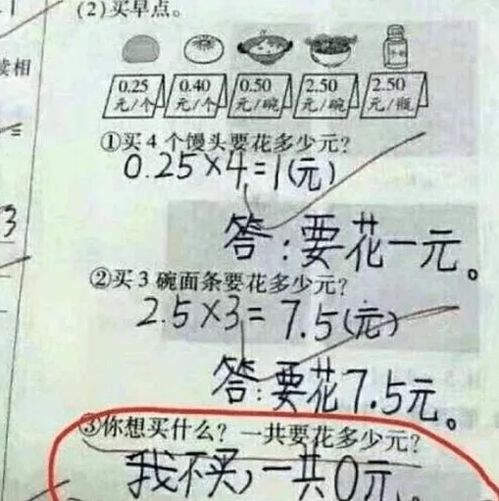 (2)买早点。
续相
0.25 0.40 0.50 2.50 2.50
元/个 元/个 元/碗 元/碗 元/瓶
①买4个馒头要花多少元?
0.25×4=1(元)
3
答:要花一元。
②买3碗面条要花多少元?
2.5×3=7.5(元)
答:要花7.5元。
③你想买什么?一共要花多少元?
我不买,一共0元。